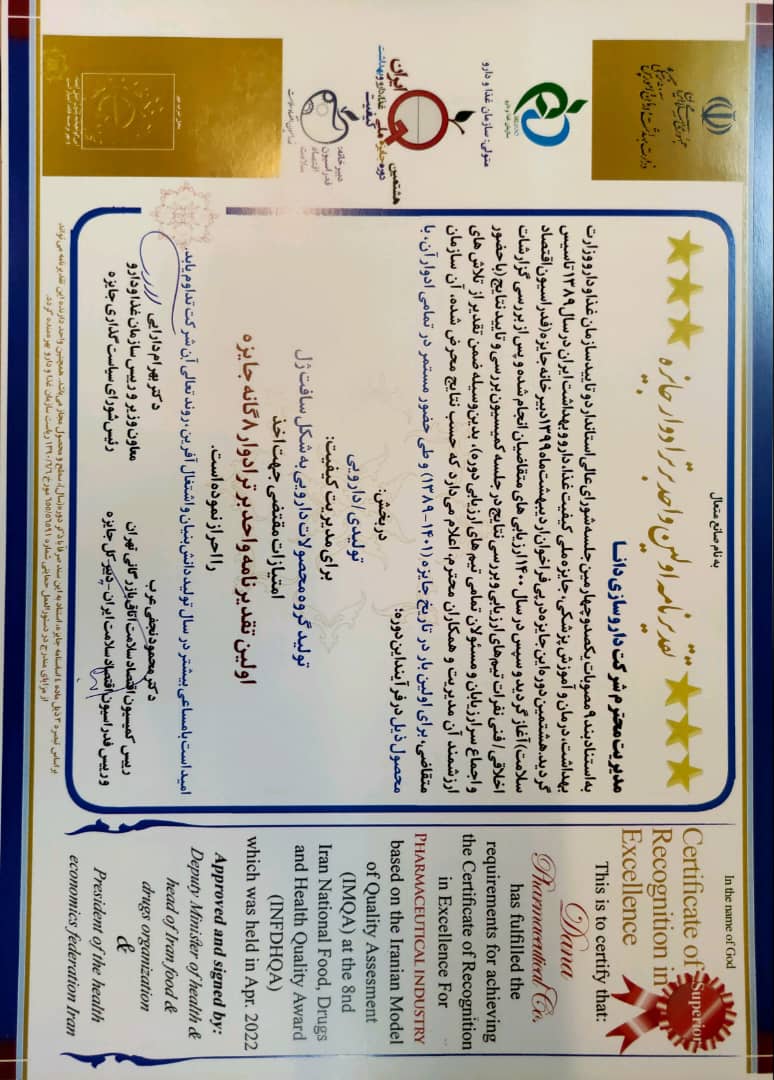 جمهوری اسلامی ایران
وزارت بهداشت، درمان و آموزش پزشکی
سازمان غذا و دارو
متولی: سازمان غذا و دارو
ایران
هشتمین
دوره جایزه ملی غذا، دارو و بهداشت
کیفیت
دبیرخانه:
فدراسیون
اقتصاد
سلامت
فدراسیون اقتصاد سلامت
محل ضرب مهر
این گواهینامه بدون اصل امضاء
و مهر برجسته فاقد اعتبار است
به نام صانع متعال
تقدیرنامه اولین واحد برتر ادوار جایزه
مدیریت محترم شرکت داروسازی دانا
به استناد بند ۹ مصوبات یکصد و چهارمین جلسه شورای عالی استاندارد و تایید سازمان غذا و دارو و وزارت
بهداشت، درمان و آموزش پزشکی، جایزه ملی کیفیت غذا، دارو و بهداشت ایران در سال ۱۳۸۹ تاسیس
گردید. هشتمین دوره این جایزه در پی فراخوان اردیبهشت ماه ۱۳۹۹ دبیرخانه جایزه (فدراسیون اقتصاد
سلامت) آغاز گردید و سپس در سال ۱۴۰۰ ارزیابی های متقاضیان انجام شده و پس از بررسی گزارشات
اخلاقی / فنی نفرات تیم‌های ارزیابی و بررسی نتایج در جلسه کمیسیون بررسی و تایید نتایج (با حضور
و اجماع سرارزیابان و مسئولان تمامی تیم های ارزیابی دوره)، بدین‌وسیله ضمن تقدیر از تلاش های
ارزشمند آن مدیریت و همکاران محترم، اعلام می‌دارد که حسب نتایج محرض شده، آن سازمان
متقاضی، برای اولین بار در تاریخ جایزه (۱۴۰۱-۱۳۸۹) و طی حضور مستمر در تمامی ادوار آن، با
محصول ذیل در فرآیند این دوره؛
در بخش:
تولیدی / دارویی
برای مدیریت کیفیت:
تولید گروه محصولات دارویی به شکل سافت ژل
امتیازات مقتضی جهت اخذ
اولین تقدیرنامه واحد برتر ادوار ۸ گانه جایزه
را احراز نموده است.
امید است با مساعی بیشتر در سال تولید دانش بنیان و اشتغال آفرین، روند تعالی آن شرکت تداوم یابد.
دکتر محمود نجفی عرب
رییس کمیسیون اقتصاد سلامت اتاق بازرگانی تهران
و رییس فدراسیون اقتصاد سلامت ایران - دبیر کل جایزه
دکتر بهرام دارایی
معاون وزیر و رییس سازمان غذا و دارو
رئیس شورای سیاست گذاری جایزه
براساس تبصره ۳ ذیل ماده ۴ اساسنامه جایزه، استناد به این سند صرفاً با ذکر دوره (سال)، سطح و محصول مجاز می‌باشد. همچنین واحد دارنده این تقدیرنامه می‌تواند
از مزایای مندرج در دستورالعمل حمایتی شماره ۶۵۵/۵۶۵۹۱ مورخ ۱۳۹۰/۶/۶ ریاست سازمان غذا و دارو بهره‌مند گردد.
In the name of God
Superior
Certificate of
Recognition in
Excellence
This is to certify that:
Dana
Pharmaceutical Co.
has fulfilled the
requirements for achieving
the Certificate of Recognition
in Excellence For
PHARMACEUTICAL INDUSTRY
based on the Iranian Model
of Quality Assesment
(IMQA) at the 8nd
Iran National Food, Drugs
and Health Quality Award
(INFDHQA)
which was held in Apr. 2022
Approved and signed by:
Deputy Minister of health &
head of Iran food &
drugs organization
&
President of the health
economics federation Iran